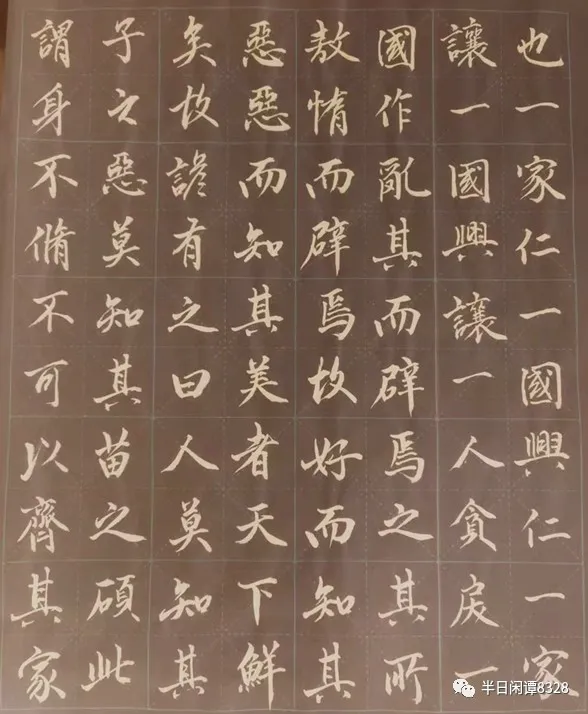 也一家仁一國興仁一家
讓一國興讓一人貪戾一
國作亂其而辟焉之其所
敖惰而辟焉故好而知其
惡惡而知其美者天下鮮
矣故諺有之曰人莫知其
子之惡莫知其苗之碩此
謂身不脩不可以齊其家
半日闲谭8328